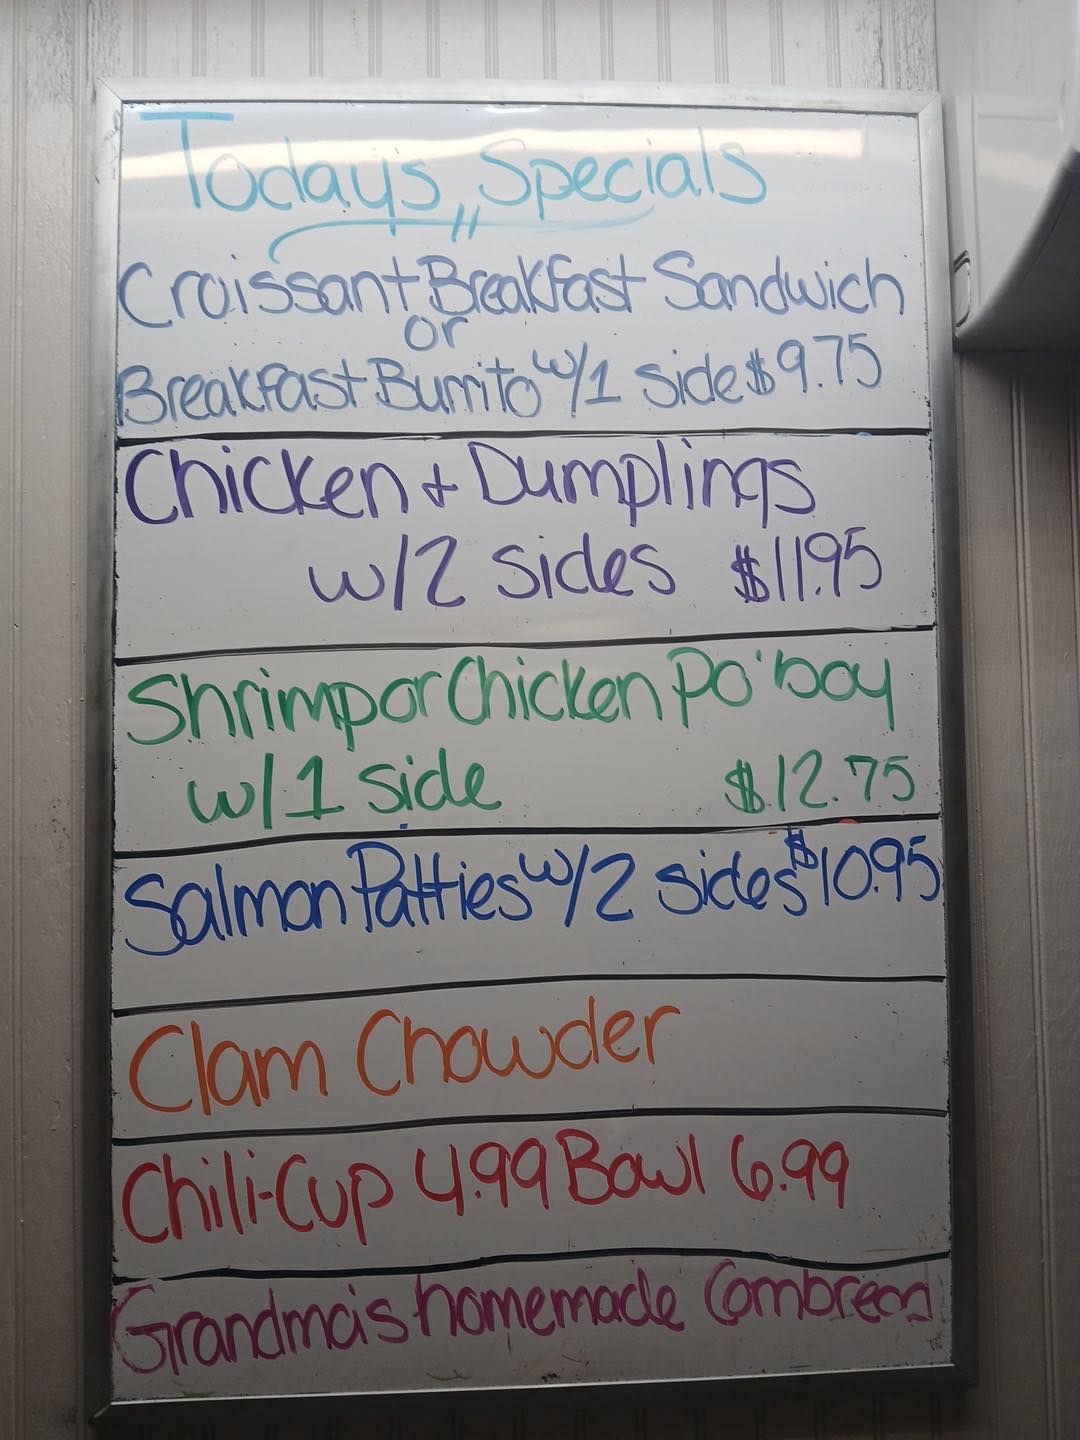 Todays Specials
Croissant Breakfast Sandwich
or
Breakfast Burrito w/1 side $9.75
Chicken + Dumplings
w/2 sides $11.95
Shrimp or Chicken Po'boy
w/1 side $12.75
Salmon Patties w/2 sides $10.95
Clam Chowder
Chili-Cup 4.99 Bowl 6.99
Grandma's homemade Cornbread